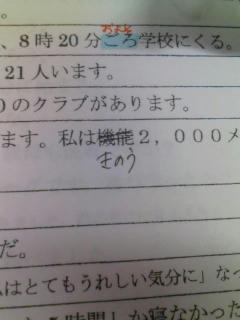 およそ
、8時20分ごろ学校にくる。
21人います。
0のクラブがあります。
ます。私は機能2,000メ
きのう
だ。
はとてもうれしい気分に」なっ
時間」か寝なかった